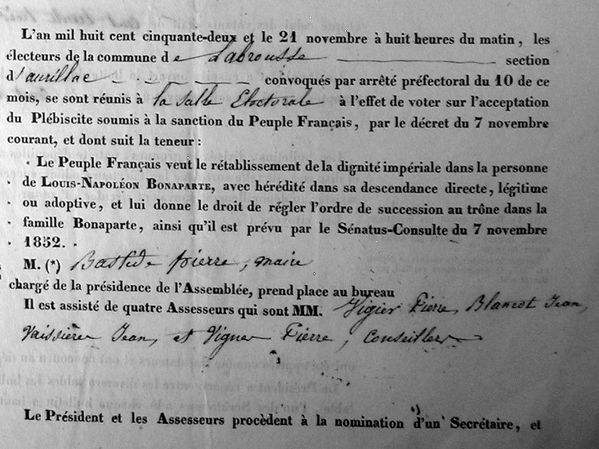 L'an mil huit cent cinquante-deux et le 21 novembre à huit heures du matin, les
électeurs de la commune de Labrousse section
d'aurillac convoqués par arrêté préfectoral du 10 de ce
mois, se sont réunis à la Salle Electorale à l'effet de voter sur l'acceptation
du Plébiscite soumis à la sanction du Peuple Français, par le décret du 7 novembre
courant, et dont suit la teneur :
« Le Peuple Français veut le rétablissement de la dignité impériale dans la personne
de Louis-Napoléon Bonaparte, avec hérédité dans sa descendance directe, légitime
ou adoptive, et lui donne le droit de régler l'ordre de succession au trône dans la
famille Bonaparte, ainsi qu'il est prévu par le Sénatus-Consulte du 7 novembre
1852. »
M. (*) Bastide pierre, maire
chargé de la présidence de l'Assemblée, prend place au bureau
Il est assisté de quatre Assesseurs qui sont MM. Vigier Pierre, Jean,
Vaissière Jean, et Pierre, Conseillers
Le Président et les Assesseurs procèdent à la nomination d'un Secrétaire, et